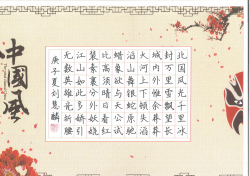 北国风光千里冰
封万里雪飘望长
城内外惟余莽莽
大河上下顿失滔
滔山舞银蛇原驰
蜡象欲与天公试
比高须晴日看红
装素裹分外妖娆
江山如此多娇引
无数英雄竞折腰
庚子夏刘慧
中國風